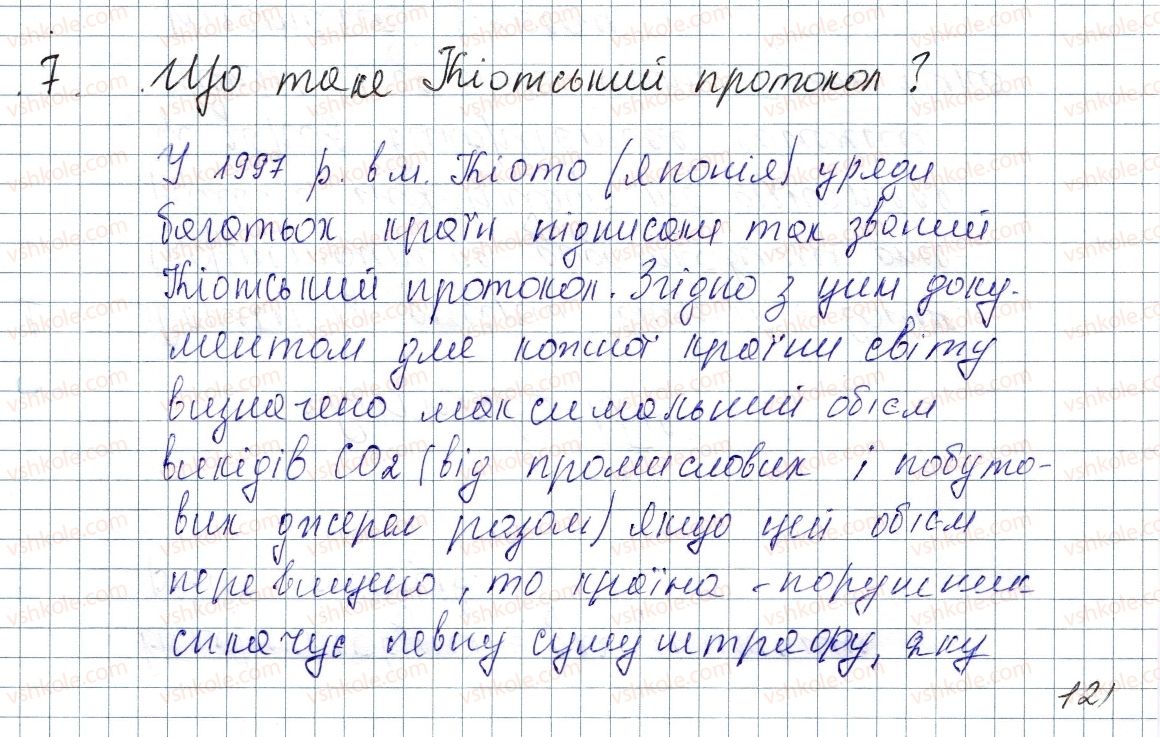 7. Що таке Кіотський протокол?
У 1997 р. в м. Кіото (Японія) уряди
багатьох країн підписали так званий
Кіотський протокол. Згідно з цим доку-
ментом для кожної країни світу
визначено максимальний обієм
викідів CO2 (від промислових і побуто-
вих джерел разом) якщо цей обієм
перевищено, то країна - порушник
сплачує певну суму штрафу, яку
121